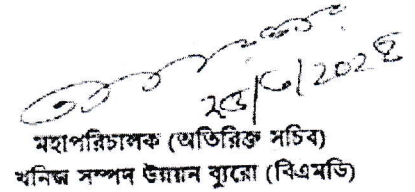 মহাপরিচালক (অতিরিক্ত সচিব)
খনিজ সম্পদ উন্নয়ন ব্যুরো (বিএমডি)